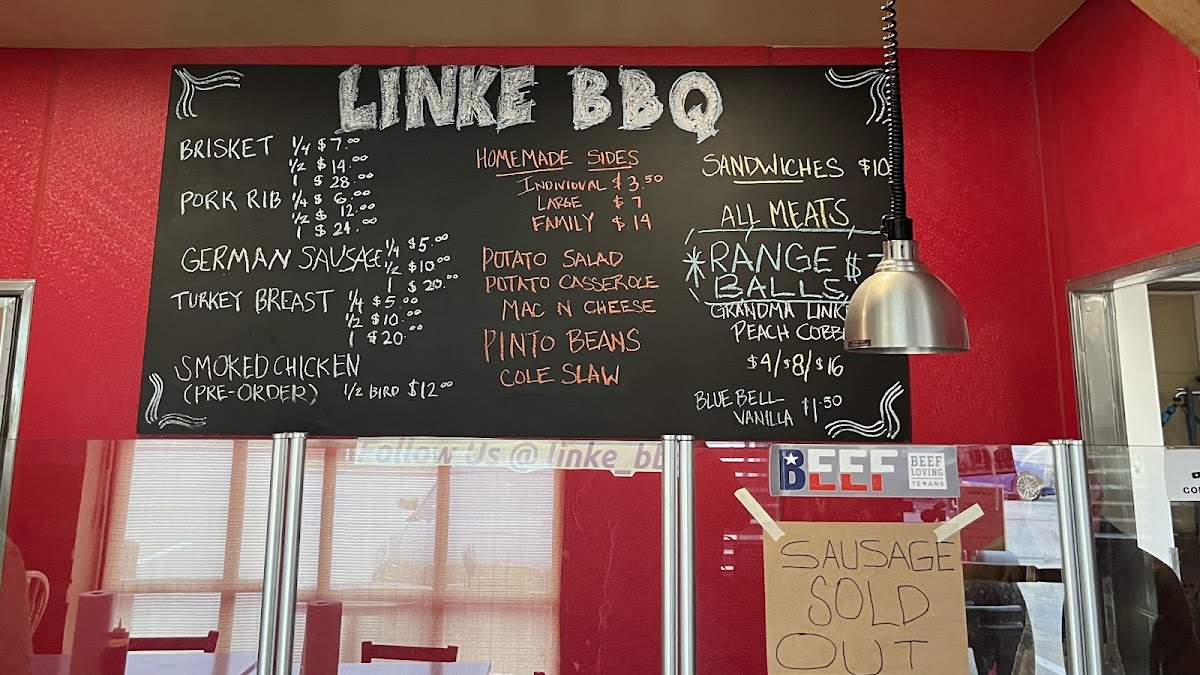 LINKE BBQ
BRISKET 1/4 $7.00
1/2 $14.00
1 $28.00
PORK RIB 1/4 $6.00
1/2 $12.00
1 $24.00
GERMAN SAUSAGE 1/4 $5.00
1/2 $10.00
1 $20.00
TURKEY BREAST 1/4 $5.00
1/2 $10.00
1 $20
SMOKED CHICKEN
(PRE-ORDER) 1/2 BIRD $12.00
HOMEMADE SIDES
INDIVIDUAL $3.50
LARGE $7
FAMILY $14
POTATO SALAD
POTATO CASSEROLE
MAC N CHEESE
PINTO BEANS
COLE SLAW
SANDWICHES $10
ALL MEATS
*RANGE $
BALLS
GRANDMA LINK
PEACH COBB
$4/$8/$16
BLUE BELL
VANILLA $1.50
Follow Us @ linke_bb
BEEF
BEEF
LOVING
TEXANS
SAUSAGE
SOLD
OUT